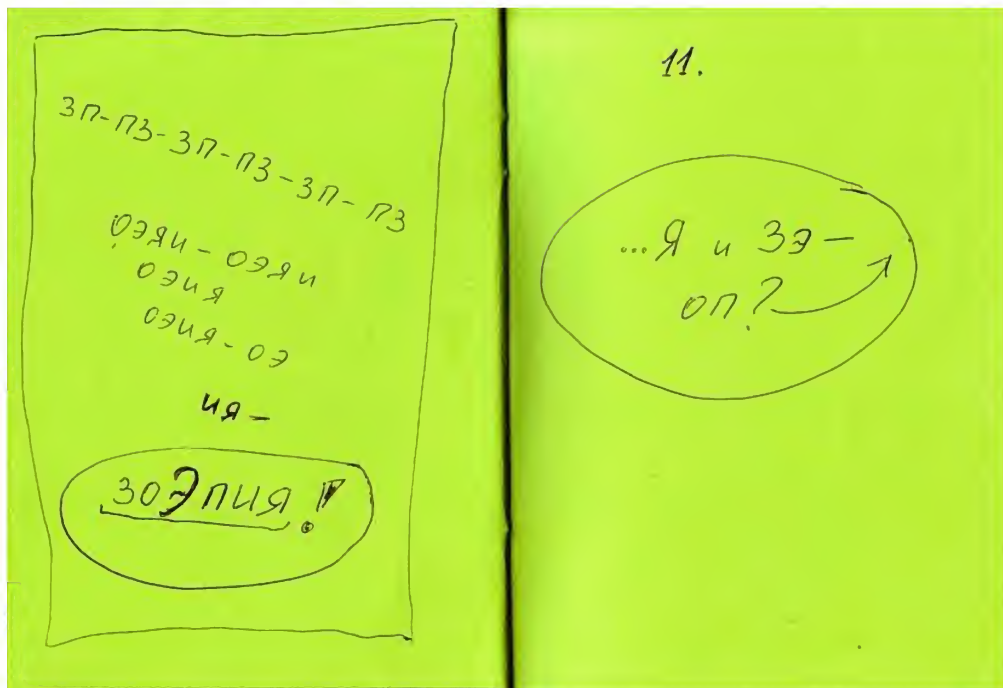 ЗП-ПЗ-ЗП-ПЗ-ЗП-ПЗ
ОЭЯИ-ОЭЯИ-ИЯЕО
ОЭИЯ
ОЭИЯ-ЭО
ИЯ-
ЗОЭПИЯ!
11.
...Я и ЗЭ-
ОП?